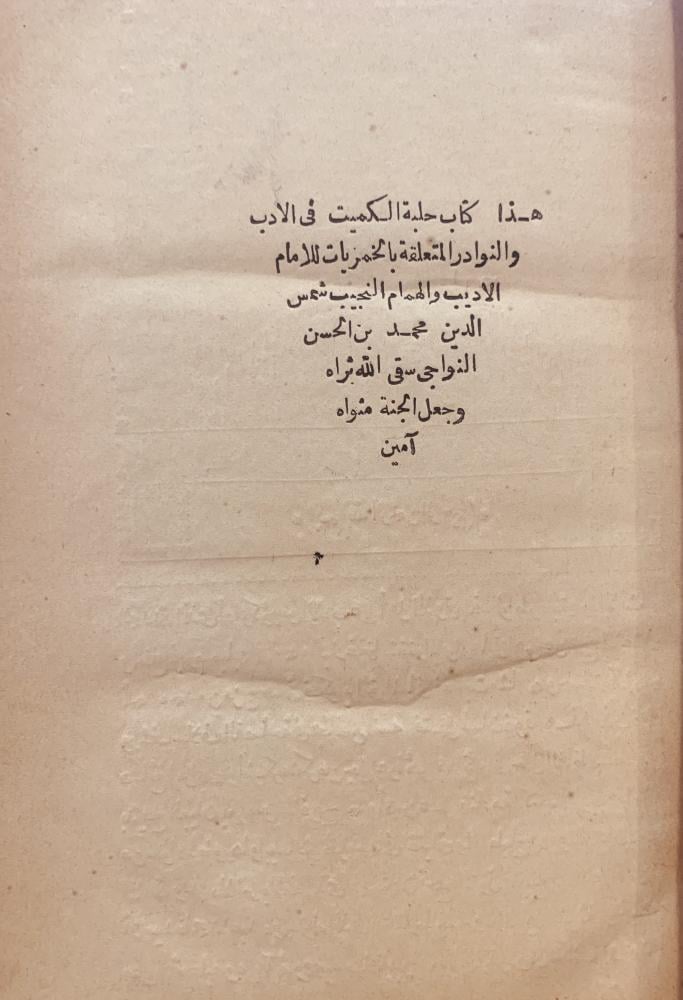 هذا كتاب حلبة الكميت فى الادب
والنوادر المتعلقة بالخمريات للامام
الاديب والهمام النجيب شمس
الدين محمد بن الحسن
النواجى سقى الله ثراه
وجعل الجنة مثواه
آمين